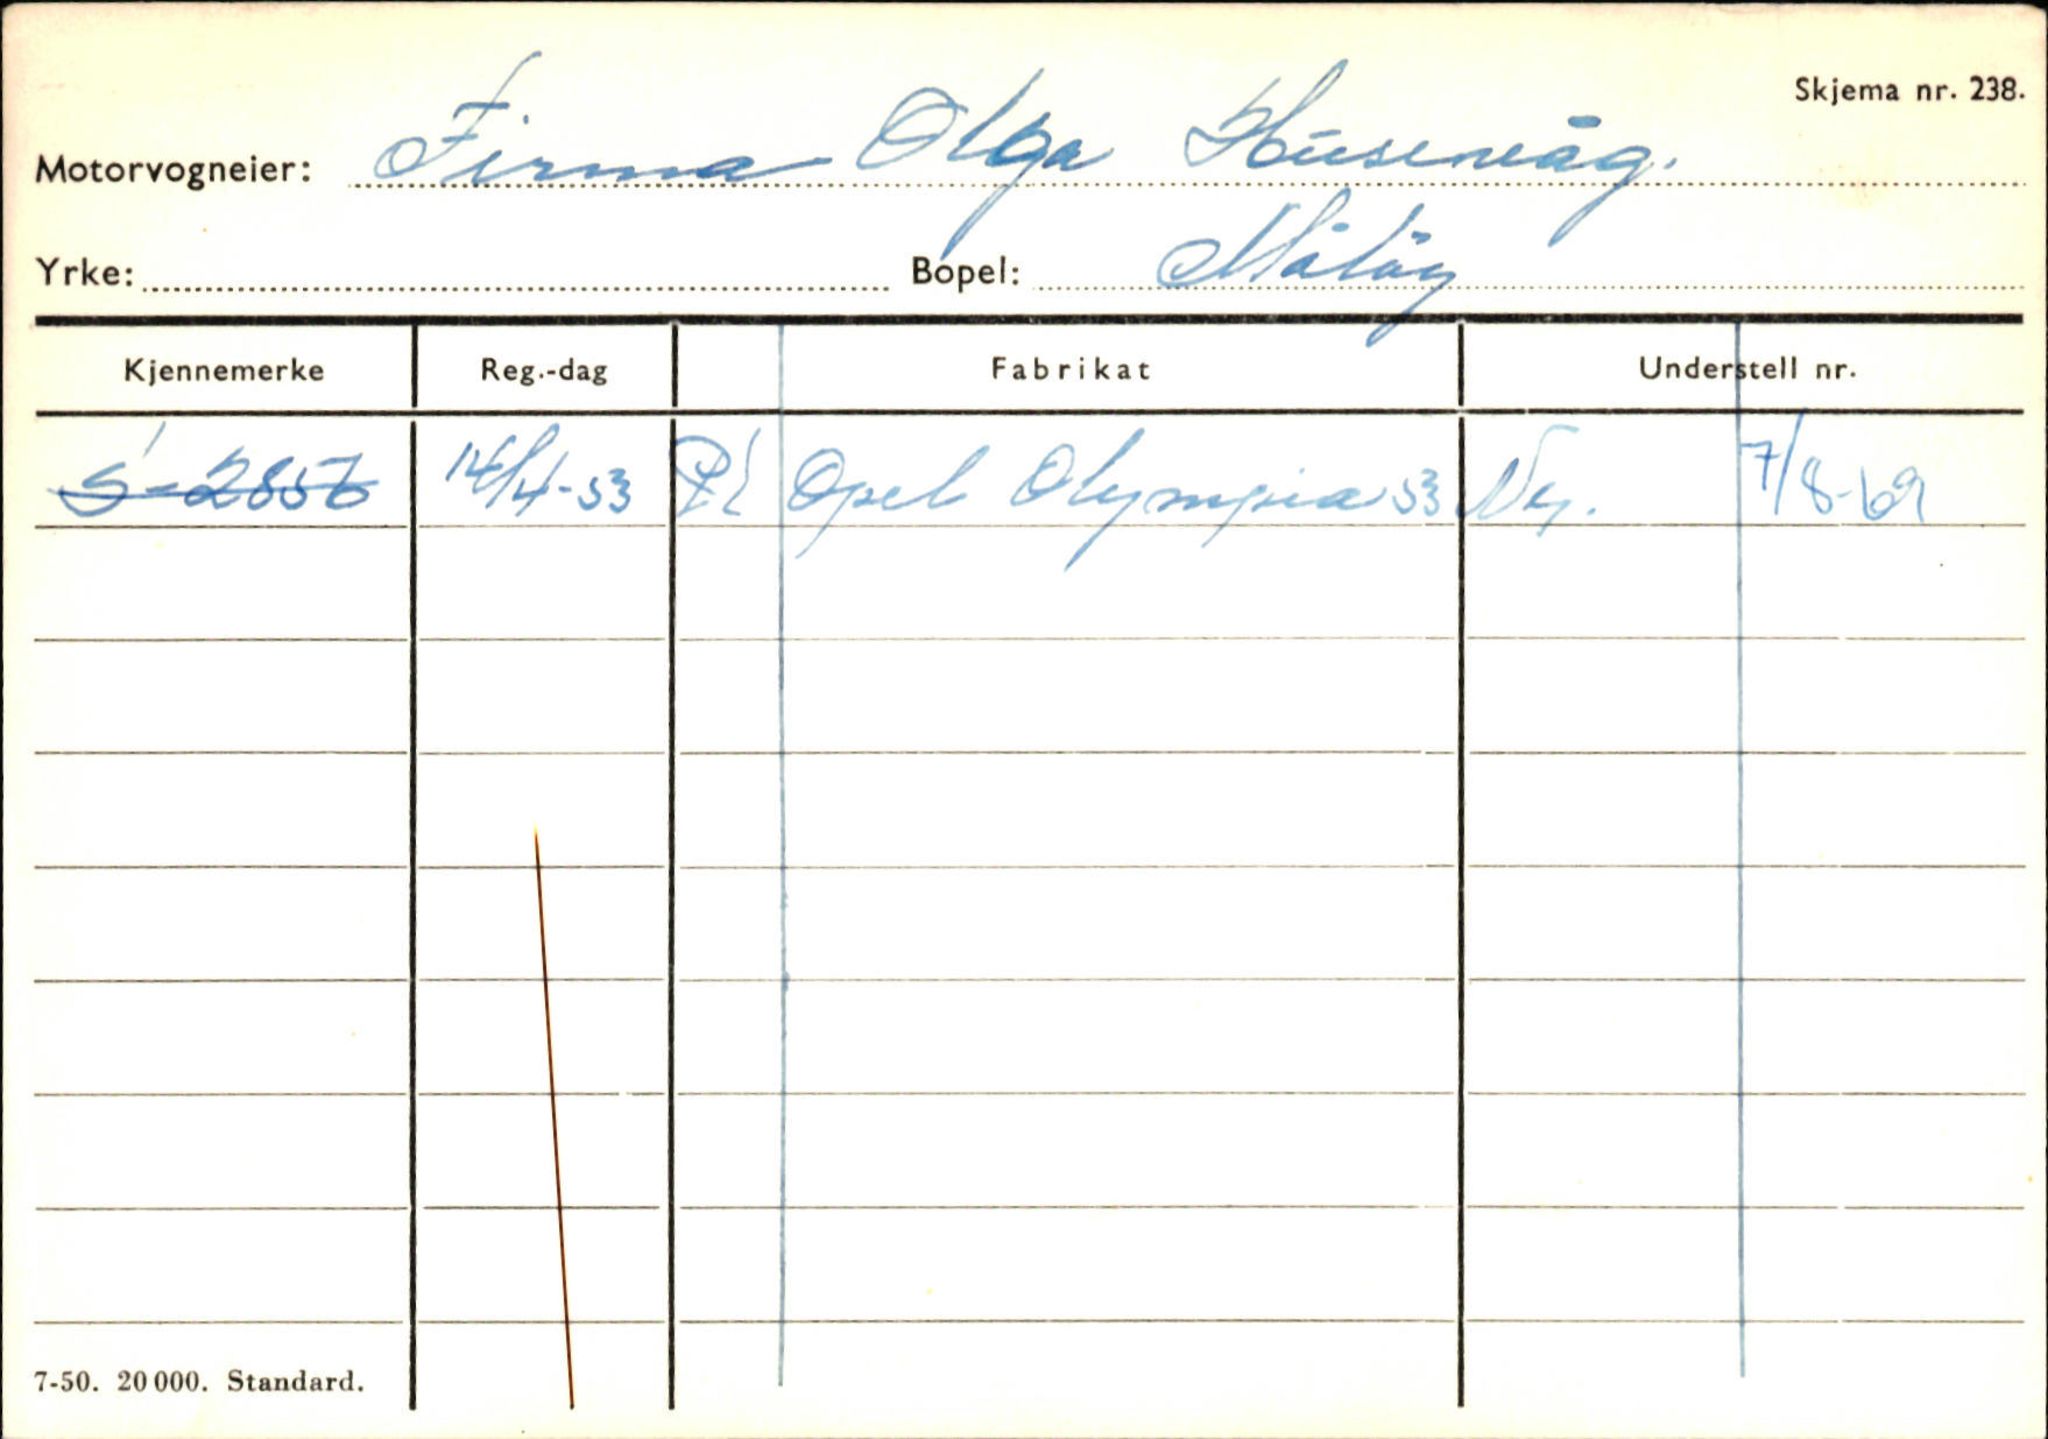 Skjema nr. 238.
Motorvogneier: Firma Olga Husevåg.
Yrke: Bopel: Måløy
Kjennemerke Reg.-dag Fabrikat Understell nr.
S-2857 14/4-53 Pl Opel Olympia 53 Ny. 7/8-69
7-50. 20 000. Standard.